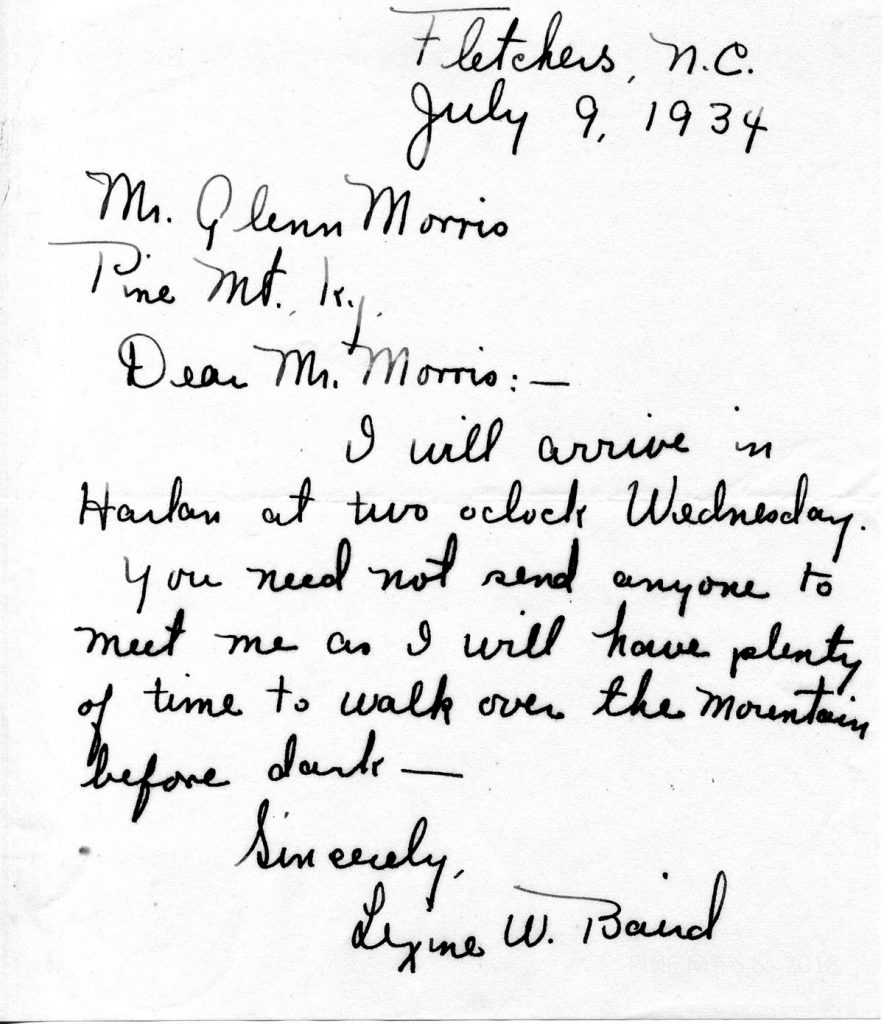 Fletchers, N.C.
July 9, 1934
Mr. Glenn Morris
Pine Mt. Ky.
Dear Mr. Morris:—
I will arrive in
Harlan at two oclock Wednesday.
You need not send anyone to
meet me as I will have plenty
of time to walk over the Mountain
before dark —
Sincerely,
Lexine W. Baird
PINE MTN S.S. 2016